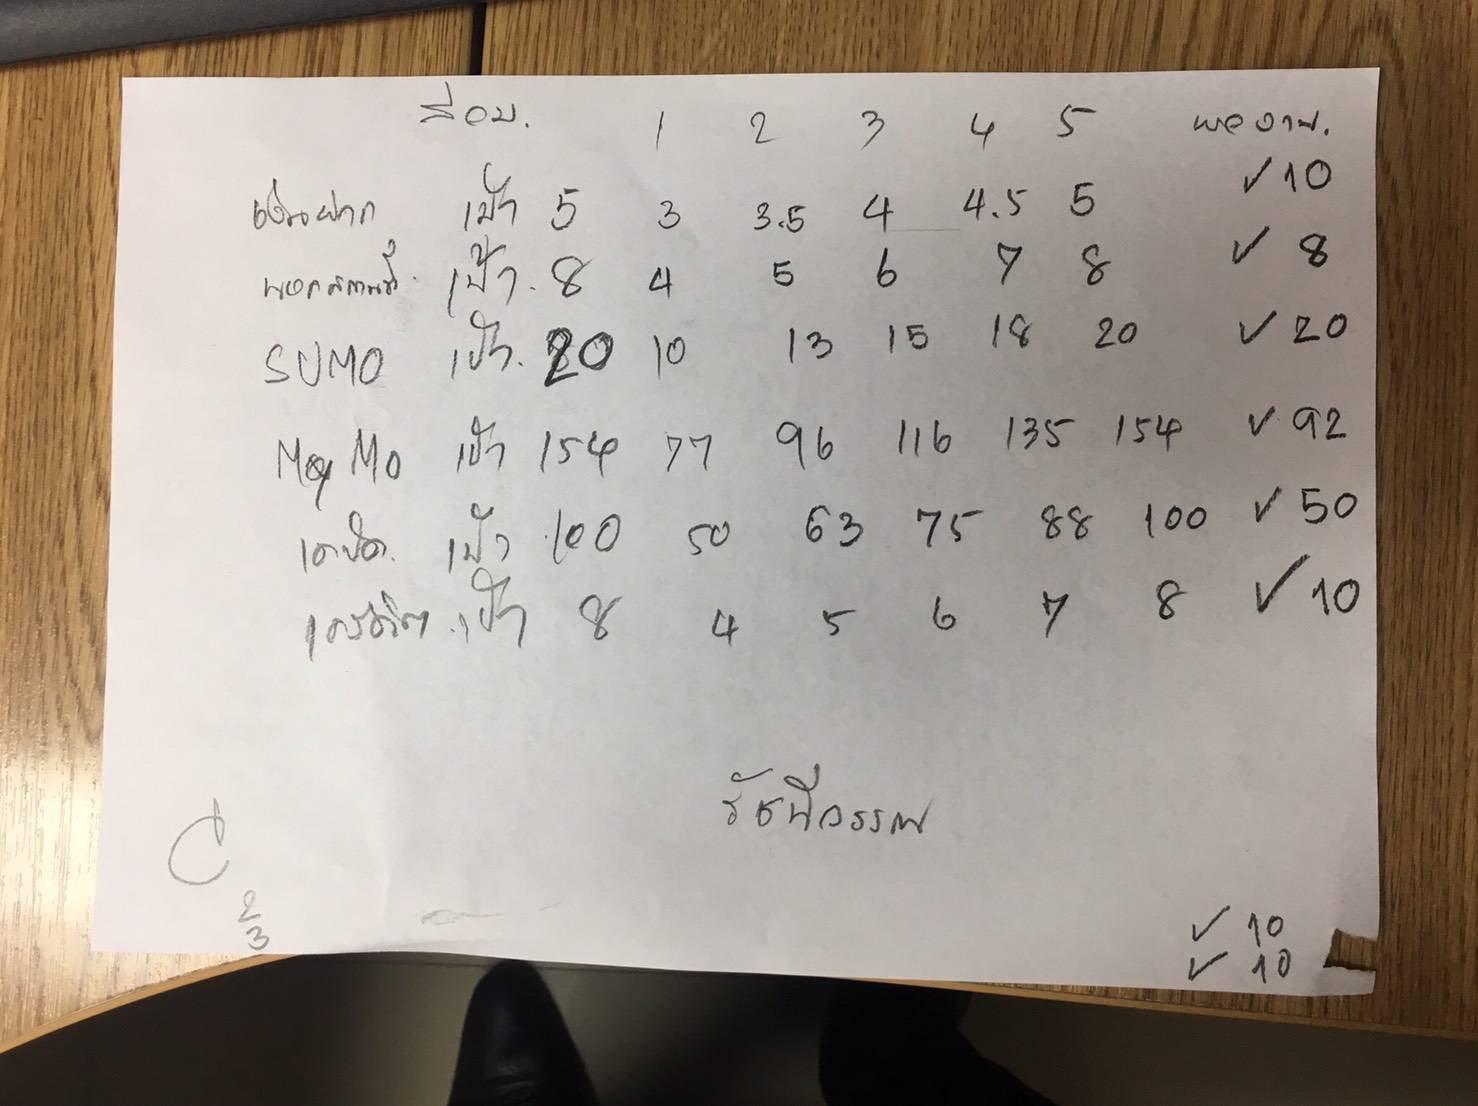 1 2 3 4 5 ผลงาน.
เงินฝาก เป้า 5 3 3.5 4 4.5 5 ✓ 10
เป้า. 8 4 5 6 7 8 ✓ 8
SUMO เป้า. 20 10 13 15 18 20 ✓ 20
My Mo เป้า 154 77 96 116 135 154 ✓ 92
เดบิต. เป้า 100 50 63 75 88 100 ✓ 50
เครดิต. เป้า 8 4 5 6 7 8 ✓ 10
รัชนีวรรณ
2
3
✓ 10
✓ 10